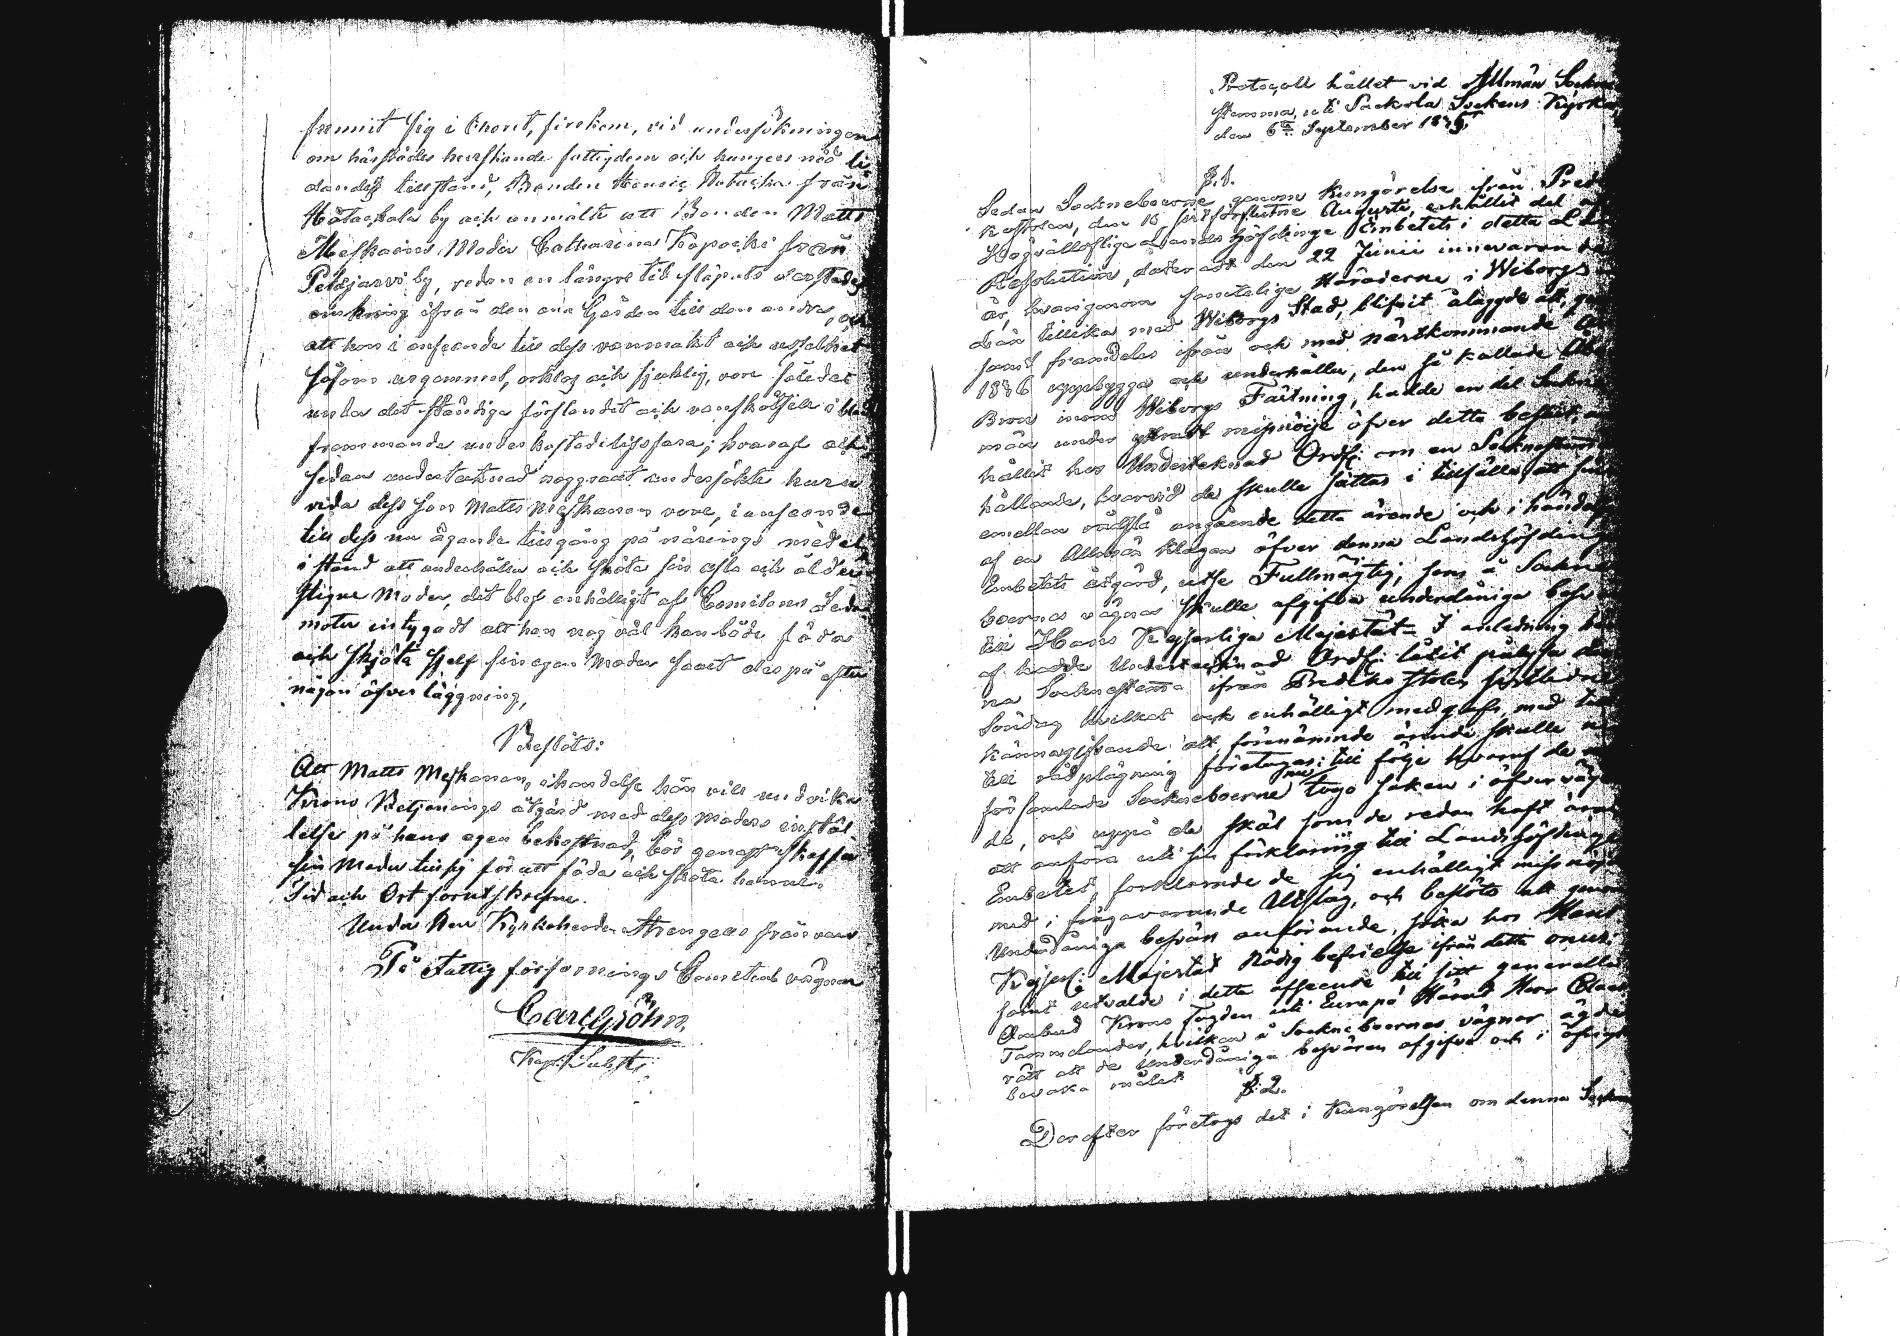 funnit sig i Choret, firekom, vid undersökningen
om härstädes herrskande fattigdom och hungers nöd li
dandes tillstånd, Bonden Henric Natucka från
Hötackala by och anmälte att Bonden Matts
Meskanens Moder Catharina Kopocki från
Petäjarvi by, redan en längre tid släpats derstädes
omkring ifrån den ena Gården till den andra, och
att hon i anseende till dess vanmakt och uselhet
såsom urgammal, orklos och sjuklig, vore således
under det ständiga förslandet och vanskötseln i
frammande under kostad lifsfara; hvaraf och
sedan undertecknad noggrant undersökte huru
vida dess son Matts Meskanen vore, i anseende
till dess nu ägande tillgång på närings medel
i stånd att underhålla och sköta sin usla och ålder
stigne Moder, det blef enhälligt af Comiteens Leda
moter intygadt att han nog väl kan både föda
och skjöta sjelf sin egen Moder samt despå efter
någon öfverläggning,
Beslöts:
Att Matts Meskanen, ihandelse hän vill undvika
Krono Betjenings åtgärd med dess moders instäl-
lelse på hans egen bekostnad, bör genast skaffa
sin Moder till sig för att föda och sköta henne.
Tid och Ort forutskrefne.
Under Herr Kyrkoherden Strengells frånvaro
På Fattig försörnings Comiteens vägnar
Carl Gröhn
Kapl. Subst:
Protocoll hållet vid Allmän Sockne
stemma, uti Sackola Sockens Kyrka,
den 6te September 1835.
§.1.
Sedan Socknebourne genom Kungörelse ifrån Predi
kostolen, den 16 sistförflutne Augusti, erhållit del af
Högvälloflige Lands höfdinge Embetets i detta Län
Resolution, daterad den 22 Junii innevarande
år, hvarigenom samtelige Häraderne i Wiborgs
län tillika med Wiborgs Stad, blifvit ålaggde att, gem
samt framdeles ifrån och med nästkommande År
1836 uppbygga och underhålla, den så kallade Abo
Bron inom Wiborgs Fästning, hadde en del Sockne
män under yttradt missnöije öfver detta beslut, an
hållit hos Undertecknad Ordf: om en Sockne stemas
hållande, hvarvid de skulle sättas i tillfälle att sins
emellan rådslå angående detta ärende och i händelse
af en Allmän klagan öfver denna Landshöfdinge
Embetets åtgärd, utse Fullmägtig, som å Sockne
boernas vägnar skulle afgifva underdåniga besvär
till Hans Kejserliga Majestät. I anledning här
af hadde Undertecknad Ordf: låtit pålysa den
na Socknestema ifrån Predikostolen sistledne
Söndag hvilket och enhälligt medgafs, med till
kännagifvande att förenämnde ärende skulle nu
till rådplägning företagas; till följe hvaraf de nu
församlade Socknebuerne togo saken i öfvervägan
de, och uppå de skäl som de redan haft äran
att anföra uti sin förklaring till Landshöfdinge
Embetet, forklarade de sig enhälligt missnöjde
med i frågavarande Utslag, och beslöto att genom
Underdåniga besvärs anförande, söka hos Hans
Kejserl: Majestät Nådig befrielse ifrån detta onus;
samt utvalde i detta afseende till sitt generalla
Ombud Krono Fogden uti Europä Härad Herr Claes
Tammelander, hvilken å Sockneboernas vägnar ägde
rätt att de Underdåniga besvären afgifva och i öfrigt
bevaka målet
§.2.
Derefter företogs det i Kungörelsen om denna Sockne